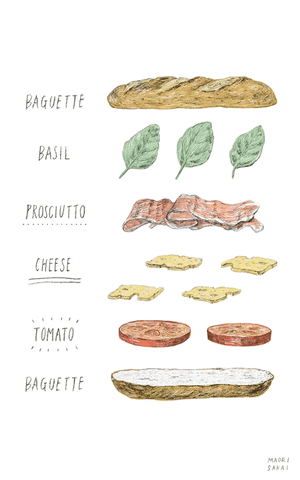 BAGUETTE
BASIL
PROSCIUTTO
CHEESE
TOMATO
BAGUETTE
MAORI
SAKAI